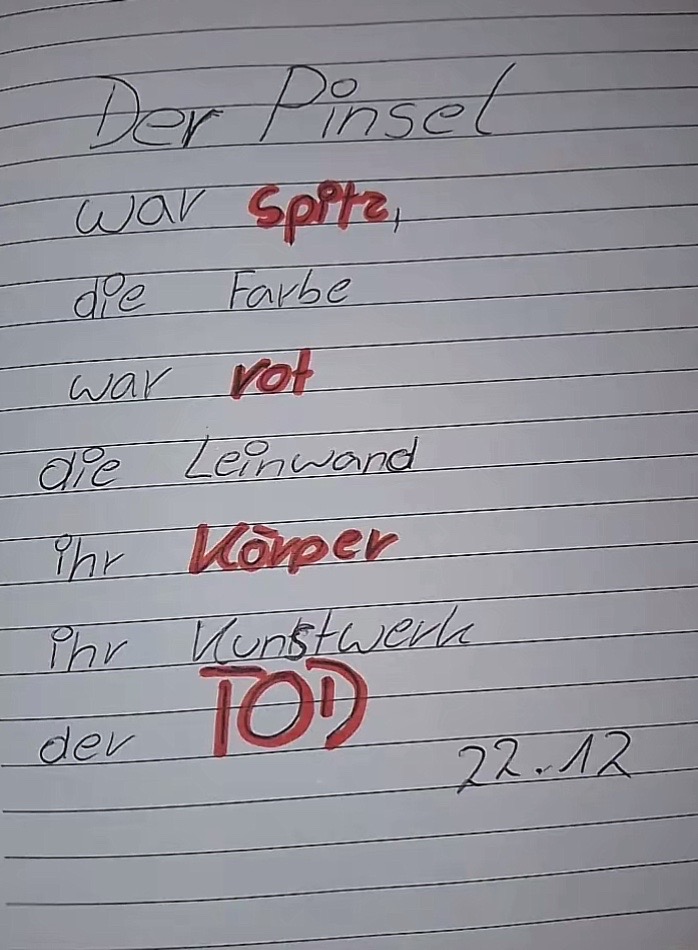 Der Pinsel
war spitz,
die Farbe
war rot
die Leinwand
ihr Körper
ihr Kunstwerk
der TOD
22.12